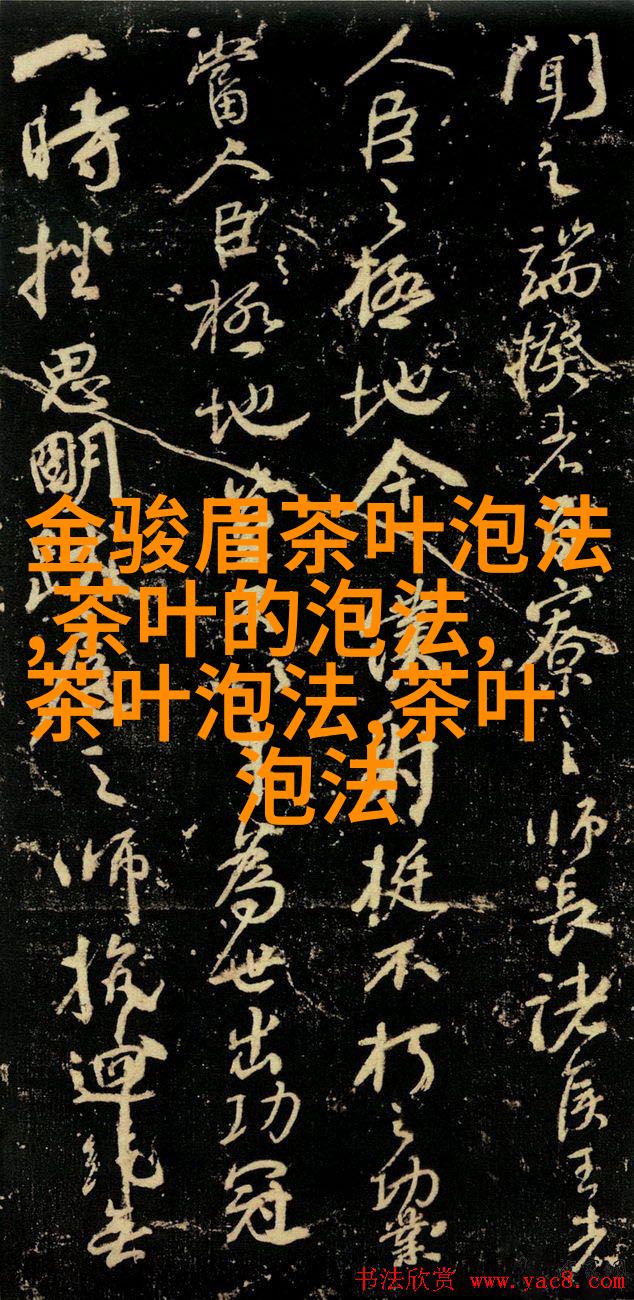 聞之端揆者寮之師長諸侯王者
人臣之極地今僕射挺不朽之功業
當人臣之極地為世出功冠
一時挫思明之師抗迴紇無
金骏眉茶叶泡法
,茶叶的泡法,
茶叶泡法,茶叶
泡法
书法欣赏 www.yac8.com